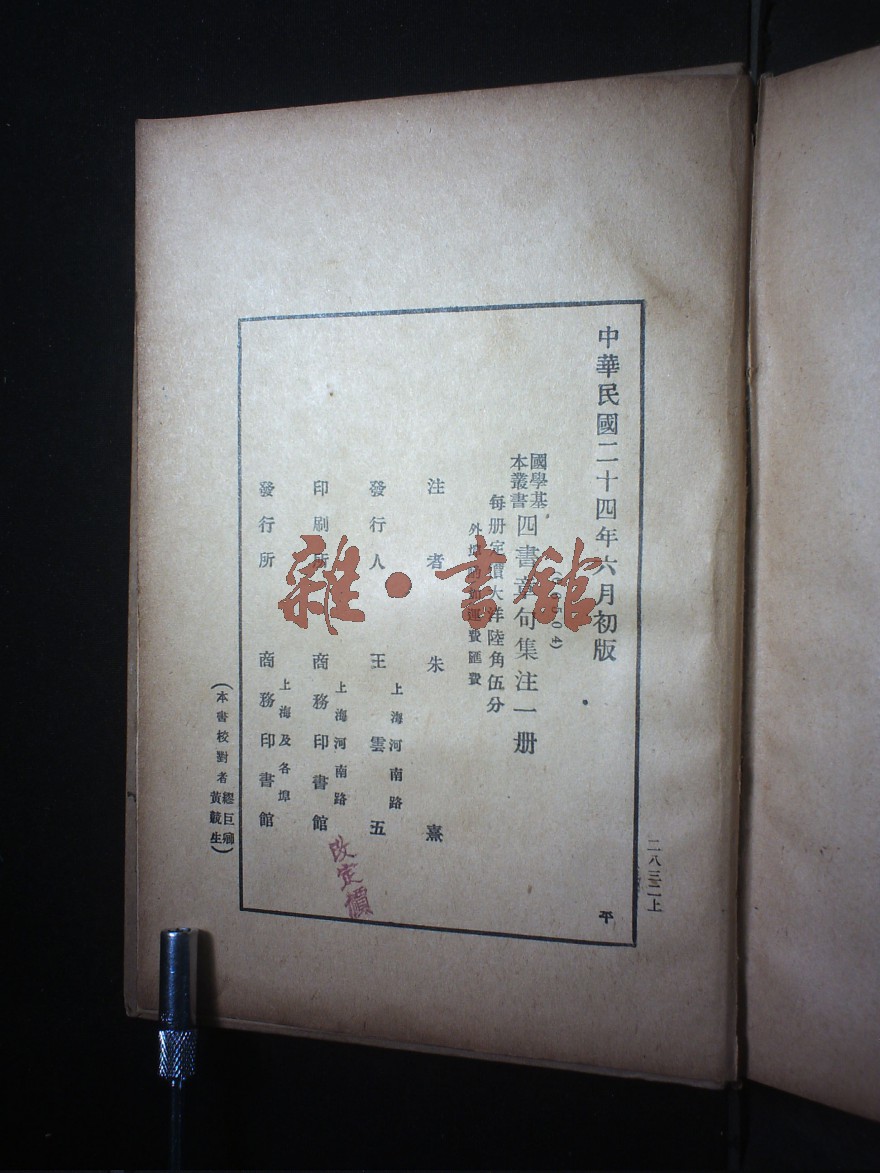 二八三二上
中華民國二十四年六月初版
平
國學基
本叢書
四書章句集注一册
504)
每册定價大洋陸角伍分
外埠酌加運費匯費
注者 朱熹
發行人 王雲五
上海河南路
印刷所 商務印書館
上海河南路
發行所 商務印書館
上海及各埠
(本書校對者 繆巨卿 黃競生)
改定價
雜·書館